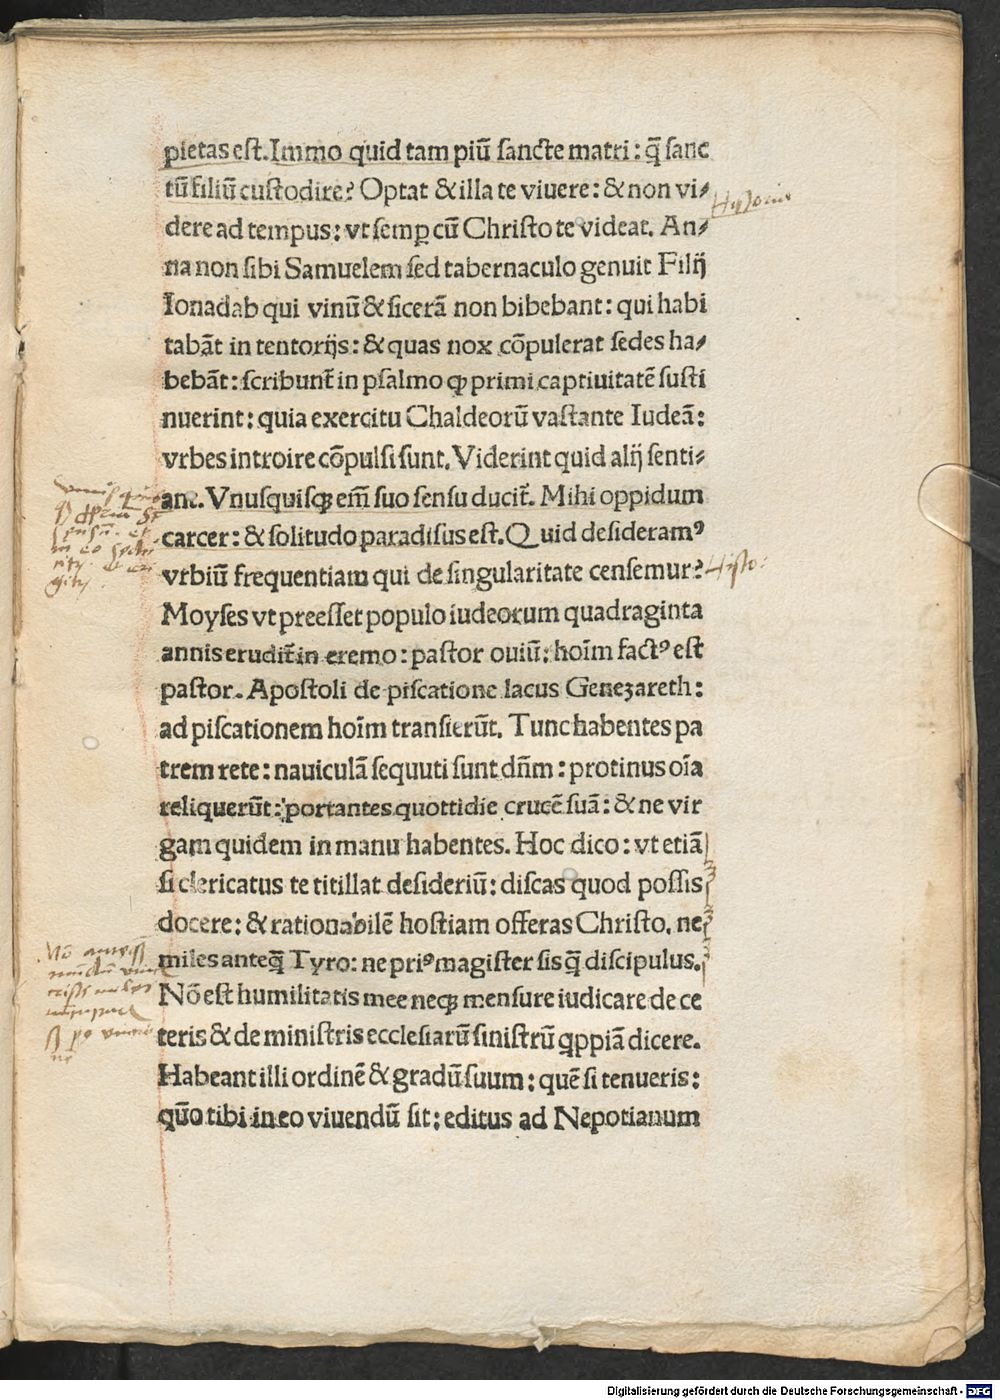 pietas est. Immo quid tam piū sancte matri: q̄ sanc
tū filiū custodire? Optat & illa te viuere: & non vi⸗
dere ad tempus: vt semꝑ cū Christo te videat. An⸗
na non sibi Samuelem sed tabernaculo genuit Filij
Ionadab qui vinū & sicerā non bibebant: qui habi
tabāt in tentorijs: & quas nox cōpulerat sedes ha⸗
bebāt: scribunt̄ in psalmo ꝙ primi captiuitatē susti
nuerint: quia exercitu Chaldeorū vastante Iudeā:
vrbes introire cōpulsi sunt. Viderint quid alij senti⸗
ant. Vnusquisqꝫ em̄ suo sensu ducit̄. Mihi oppidum
carcer: & solitudo paradisus est. Quid desideramꝰ
vrbiū frequentiam qui de singularitate censemur?
Moyses vt preesset populo iudeorum quadraginta
annis erudit̄ in eremo: pastor ouiū: hoīm factꝰ est
pastor. Apostoli de piscatione lacus Genezareth:
ad piscationem hoīm transierūt. Tunc habentes pa
trem rete: nauiculā sequuti sunt dn̄m: protinus oīa
reliquerūt: portantes quottidie crucē suā: & ne vir
gam quidem in manu habentes. Hoc dico: vt etiā
si clericatus te titillat desideriū: discas quod possis
docere: & rationabilē hostiam offeras Christo. ne
miles anteq̄ Tyro: ne priꝰ magister sis q̄ discipulus.
Nō est humilitatis mee neqꝫ mensure iudicare de ce
teris & de ministris ecclesiarū sinistrū qppiā dicere.
Habeant illi ordinē & gradū suum: quē si tenueris:
quō tibi in eo viuendū sit: editus ad Nepotianum
Histo:
Digitalisierung gefördert durch die Deutsche Forschungsgemeinschaft - DFG